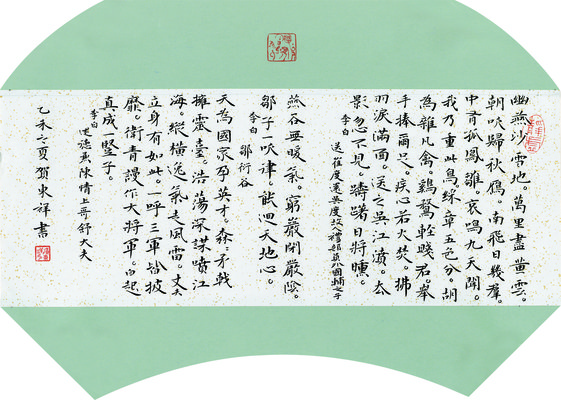 幽燕沙雪地。萬里盡黄雲。
朝吹歸秋雁。南飛日幾羣。
中有孤鳳雛。哀鳴九天聞。
我乃重此鳥。綵章五色分。胡
為雜凡禽。鷄鶩輕賤君。舉
手捧爾足。疾心若火焚。拂
羽淚滿面。送之吳江濆。去
影忽不見。躊躇日將曛。
李白 送崔度還吳度故人禮部員外國輔之子
燕谷無暖氣。窮巖閉嚴陰。
鄒子一吹律。能迴天地心。
李白 鄒衍谷
天為國家孕英才。森〻矛戟
擁靈臺。浩蕩深謀噴江
海。縱橫逸氣走風雷。丈夫
立身有如此。一呼三軍皆披
靡。衛青謾作大將軍。白起
真成一豎子。
李白 述德兼陳情上哥舒大夫
乙未之夏賀東祥書